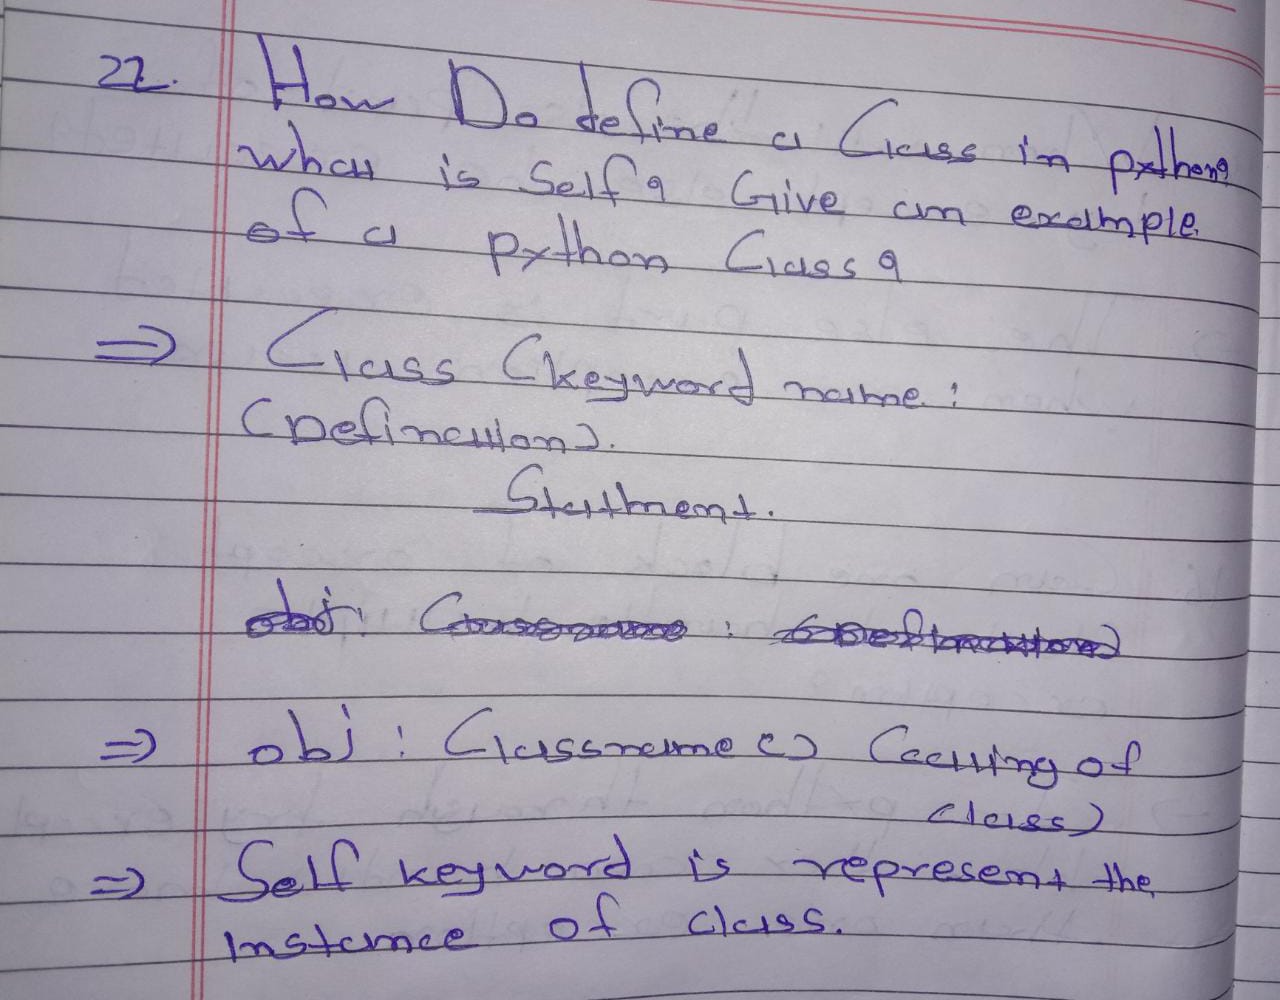 22. How Do define a Class in python?
what is Self? Give an example
of a python Class?
⇒ Class (keyword name :
(Defination).
Statment.
obj : Classname : (Defination)
⇒ obj : Classname () (calling of
class)
⇒ Self keyword is represent the
instance of class.